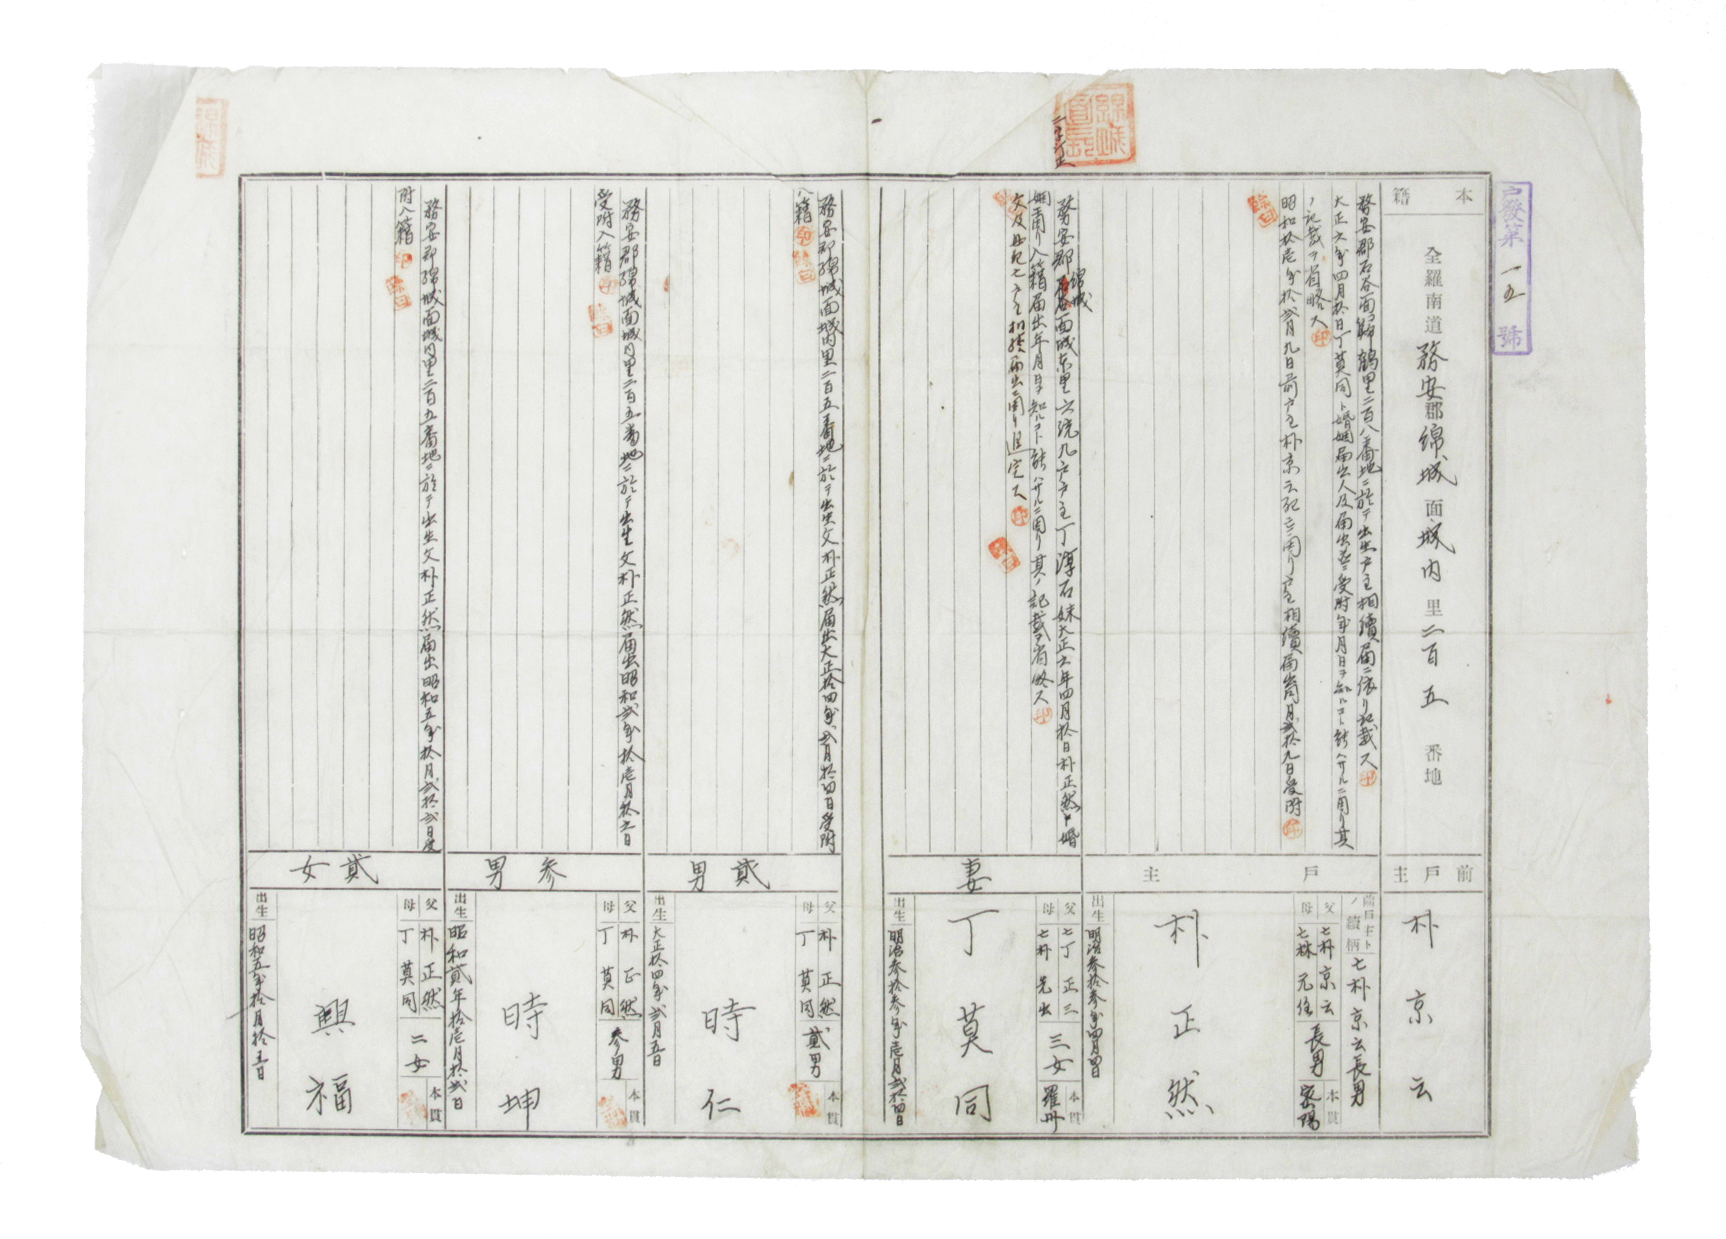 戶發第一五號
本籍
全羅南道務安郡綿城面城内里二百五番地
前戶主
朴京云
務安郡石谷面
鶴里二百八番地ニ於テ出生戶主相續届ニ依リ記載ス
大正六年四月拾日丁莫同ト婚姻届出人及届出並ニ受附年月日ヲ知ルコト能ハサルニ因リ其
ノ記載ヲ省略ス
昭和拾壱年拾弐月九日前戶主朴京云死亡ニ因リ戶主相續届出同月弐拾九日受附
戶主
前戶主トノ續柄
亡朴京云長男
父
亡朴京云
母
亡林元任
長男
本貫
密陽
朴正然
出生
明治参拾参年四月四日
二字訂正
綿城
務安郡
面城东里六統九戶戶主丁淳石妹大正六年四月拾日朴正然ト婚
姻ニ因リ入籍届出年月日ヲ知ルコト能ハサルニ因リ其ノ記載ヲ省略ス
相續届出ニ因リ
妻
父
亡丁正三
母
亡朴
三女
本貫
羅州
丁莫同
出生
明治参拾参年壱月弐拾四日
務安郡綿城面城内里二百五番地ニ於テ出生父朴正然届出大正拾四年弐月拾四日受附
入籍
貳男
父
朴正然
母
丁莫同
貳男
本貫
時仁
出生
大正拾四年弐月五日
務安郡綿城面城内里二百五番地ニ於テ出生父朴正然届出昭和弐年拾壱月拾六日
受附入籍
参男
父
朴正然
母
丁莫同
参男
本貫
時坤
出生
昭和貳年拾壱月拾弐日
務安郡綿城面城内里二百五番地ニ於テ出生父朴正然届出昭和五年拾月弐拾弐日受
附入籍
貳女
父
朴正然
母
丁莫同
二女
本貫
興福
出生
昭和五年拾月拾五日